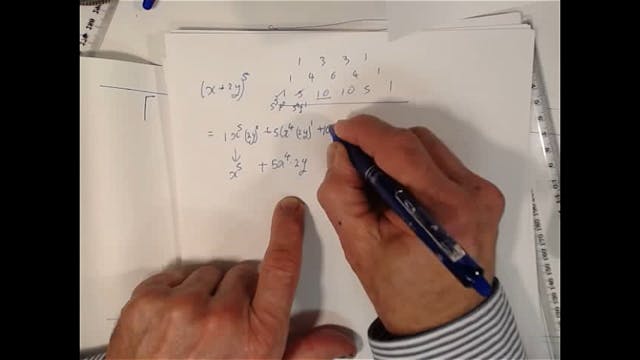 1 3 3 1
1 4 6 4 1
(x+2y)⁵ 1 5 10 10 5 1
= 1x⁵(2y)⁰ + 5(x⁴(2y)¹ + 10
x⁵ + 5x⁴·2y